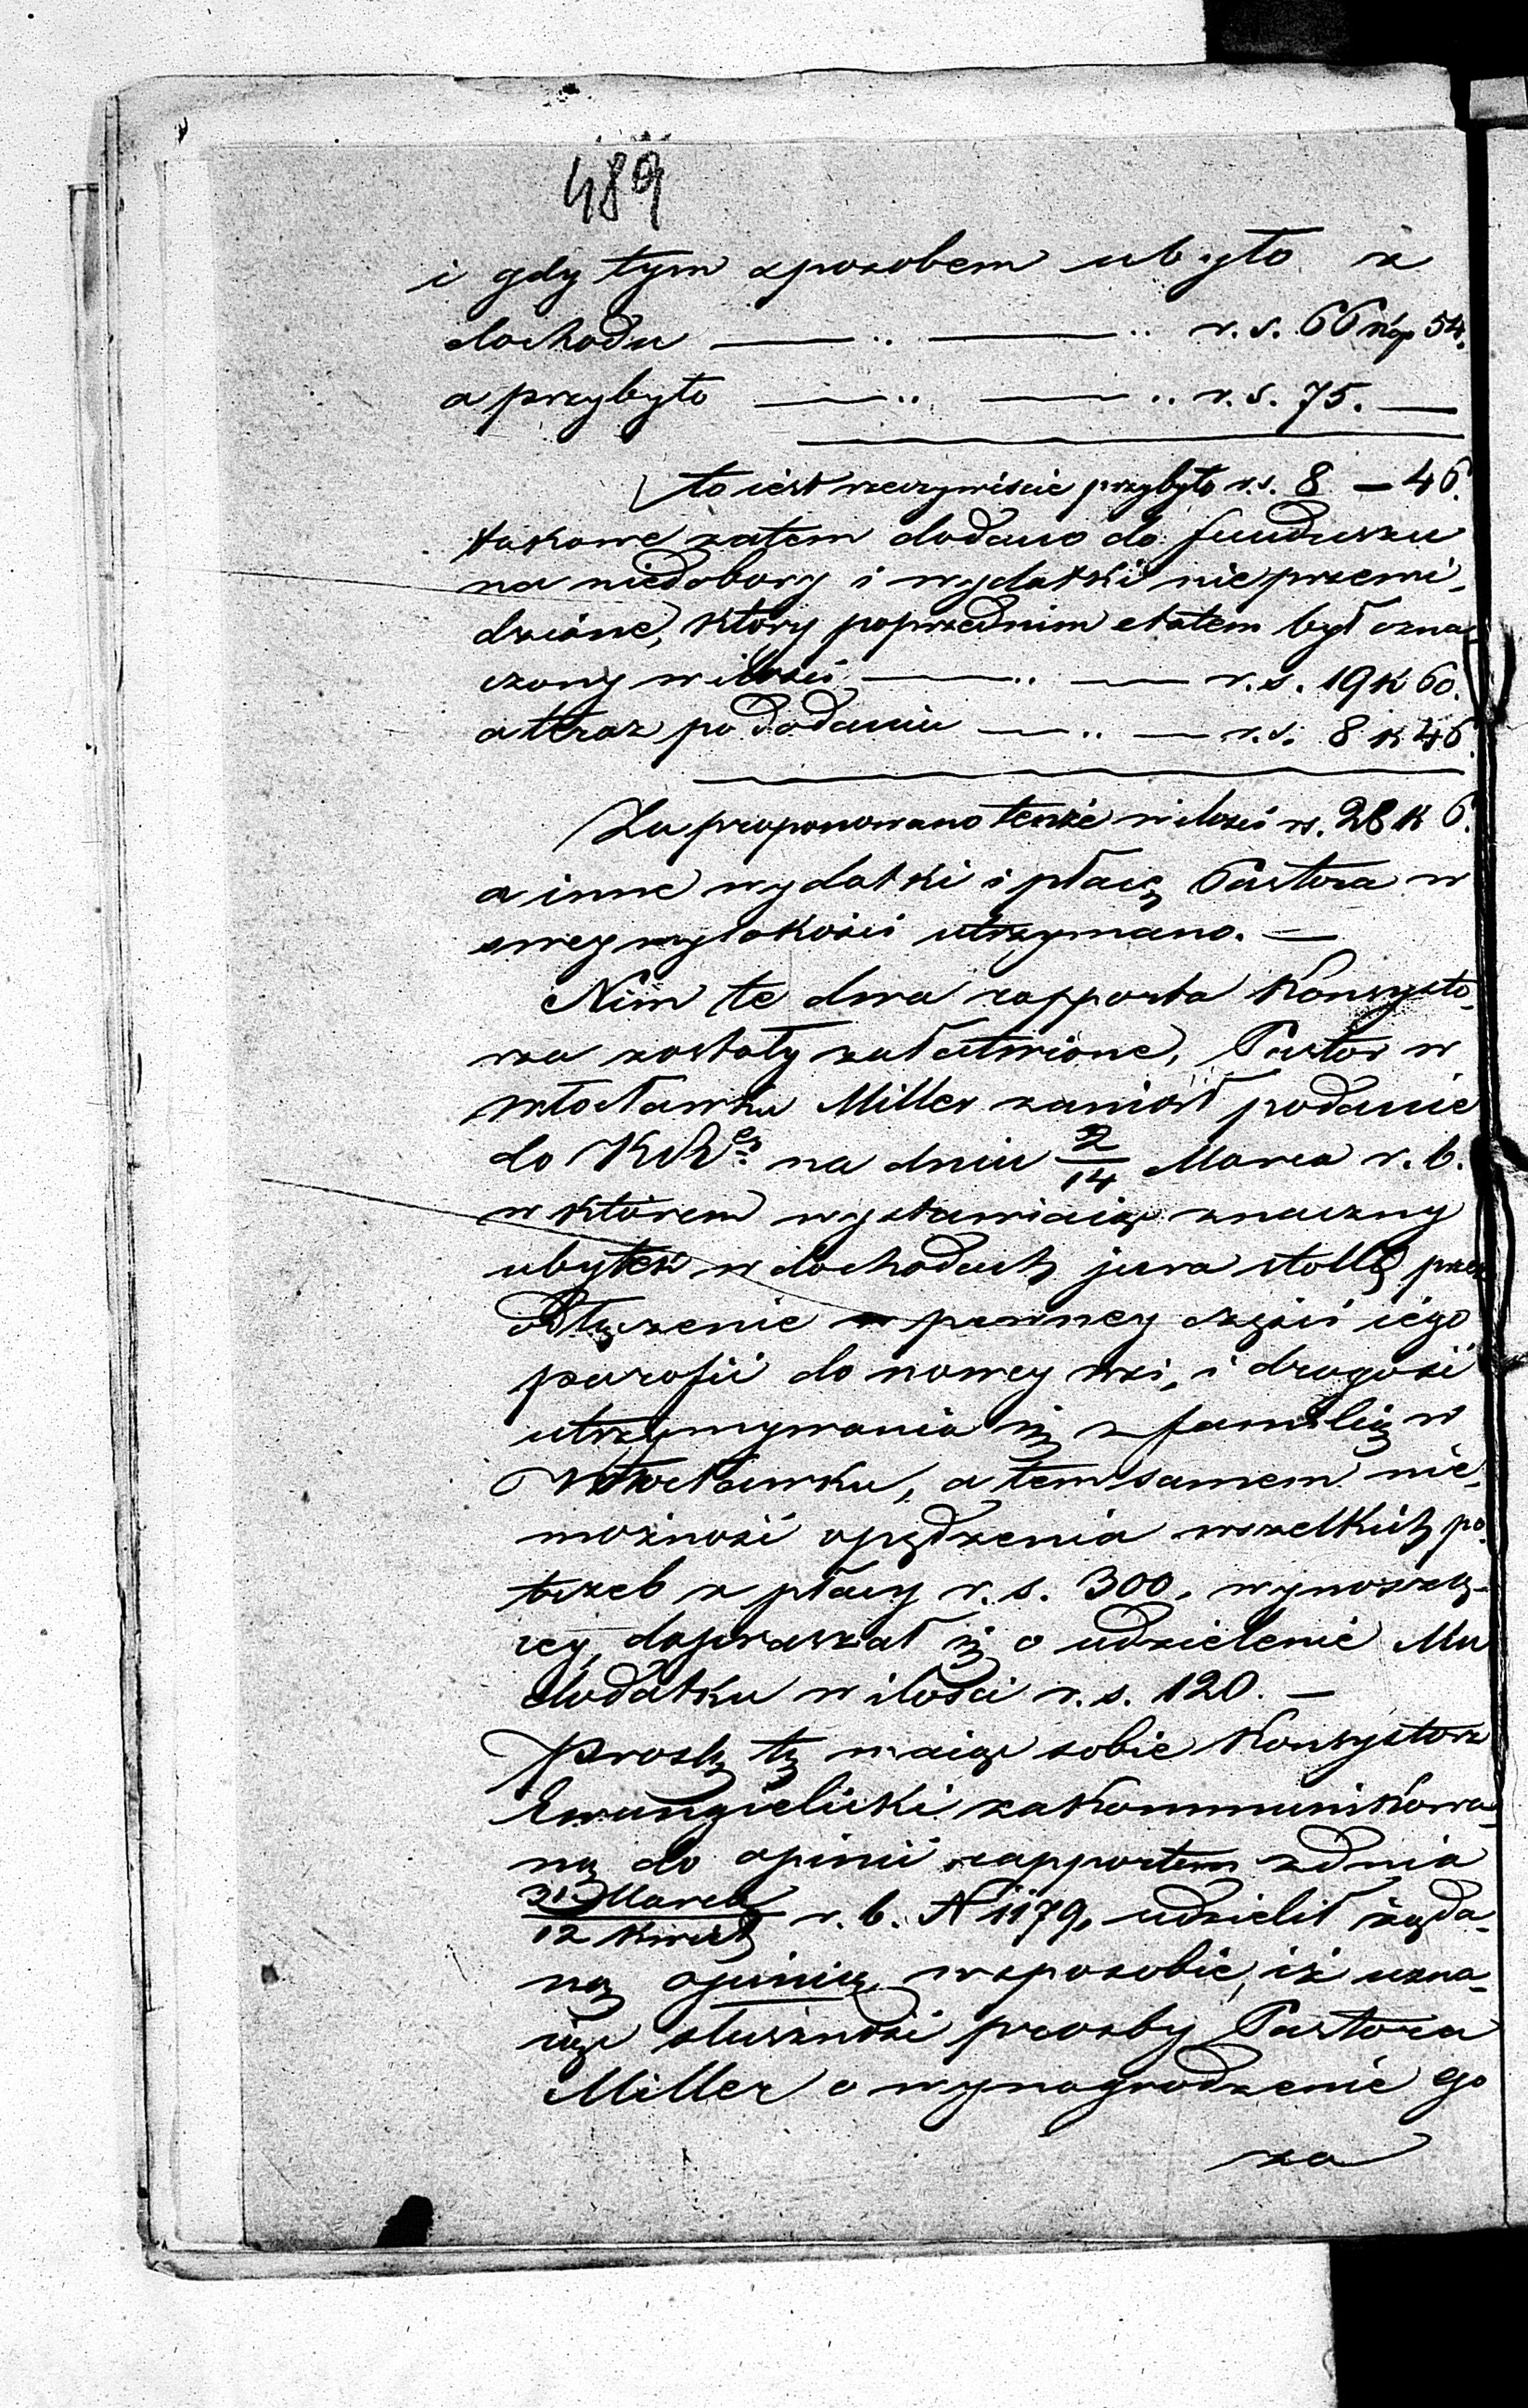 489
i gdy tym sposobem ubyło z
dochodu —— .. —— .. r. s. 66 kop 54.
a przybyło —— .. —— .. r. s. 75. —
to iest rzeczywiście przybyło r. s. 8 — 46.
takowe zatem dodano do funduszu
na niedobory i wydatki nieprzewi-
dziane, który poprzednim etatem był ozna-
czony w ilości —— .. —— r. s. 19 k 60.
a teraz po dodaniu —— .. —— r. s. 8 k 46.
Zaproponowano tenże w ilości rs. 28 k 6.
a inne wydatki i płacę Pastora w
swey wysokości utrzymano. —
Nim te dwa rapporta Konsysto-
rza zostały załatwione, Pastor w
Włocławku Miller zaniósł podanie
do na dniu 2/14 Marca r. b.
w którem wystawiaiąc znaczny
ubytek w dochodach jura stollę przez
odłączenie pewney części iego
parafii do nowey wsi, i drogość
utrzymywania się z familią w
Włocławku, a tem samem nie-
możność opędzenia wszelkich po-
trzeb z płacy r. s. 300, wynoszą-
cey, dopraszał się o udzielenie Mu
dodatku w ilości r. s. 120. —
Prosbę tę maiąc sobie Konsystorz
Ewangielicki zakommunikowa-
ną do opinii rapportem z dnia
31 Marca/12 Kwiet r. b. N 1179, udzielił żąda-
ną opinię w sposobie, iż uzna-
iąc słuszność prosby Pastora
Miller o wynagrodzenie go
za